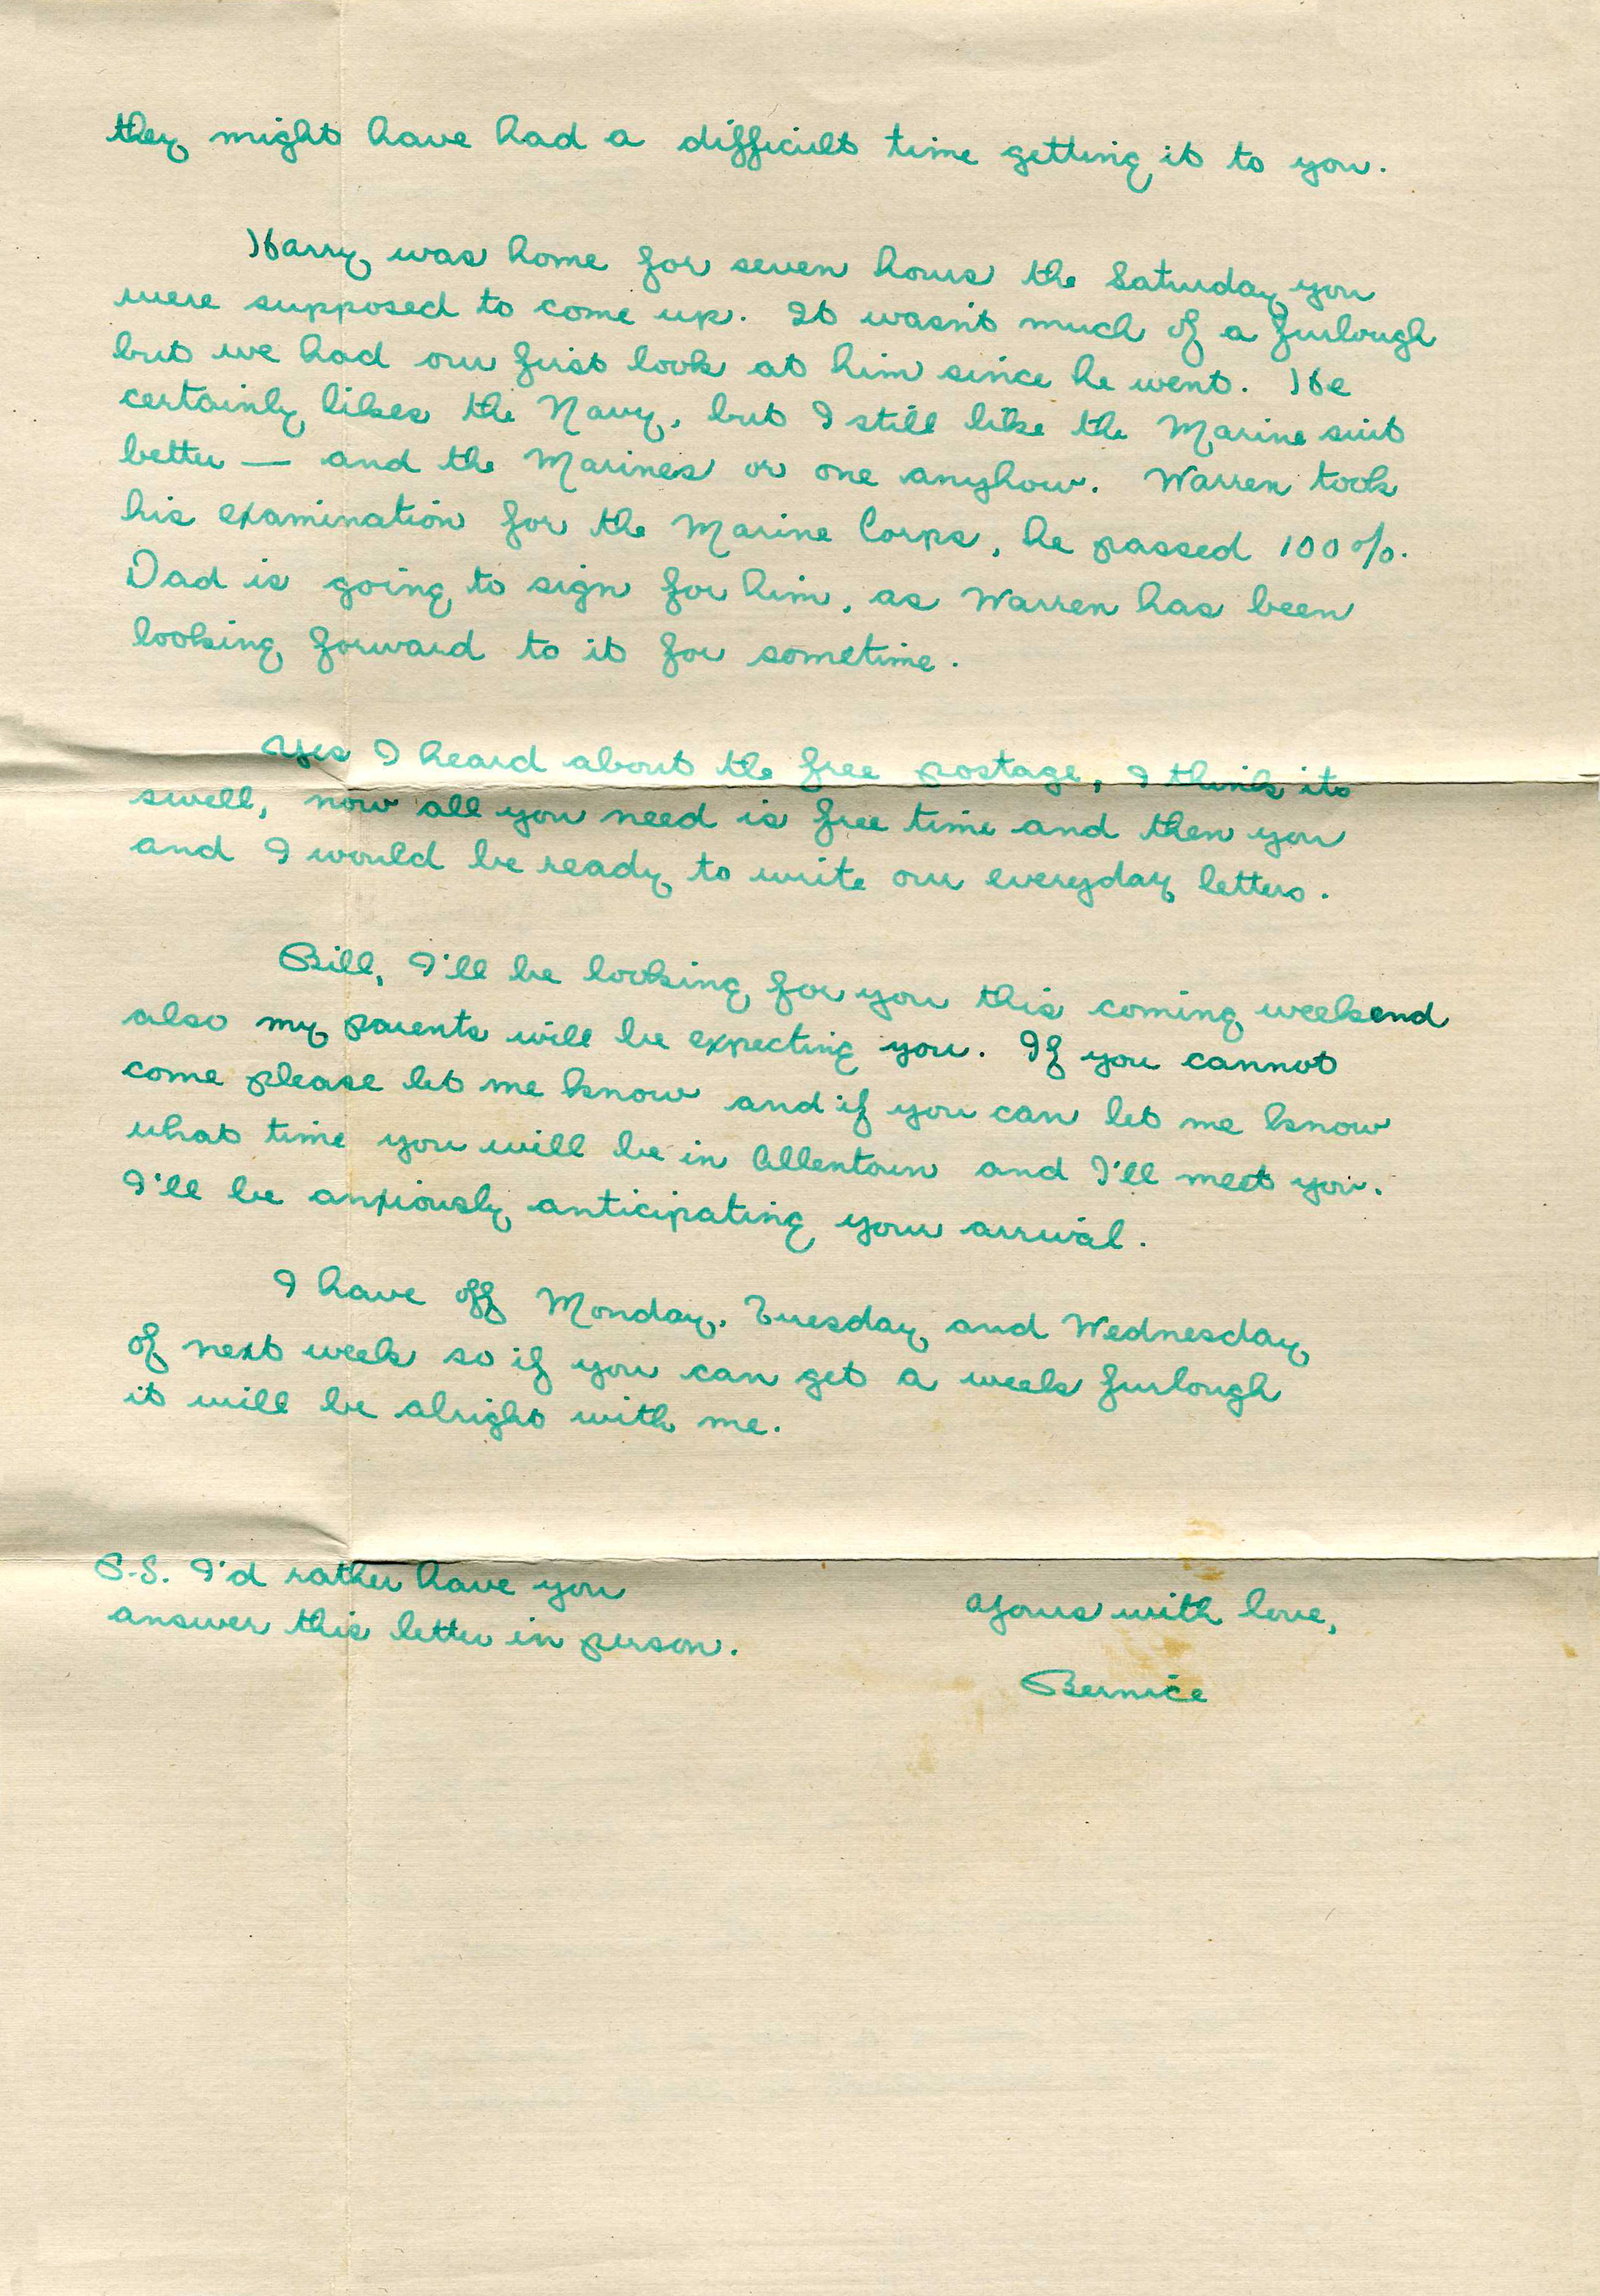 they might have had a difficult time getting it to you.
Harry was home for seven hours the Saturday you
were supposed to come up. It wasn't much of a furlough
but we had our first look at him since he went. He
certainly likes the Navy, but I still like the Marine suit
better — and the Marines or one anyhow. Warren took
his examination for the Marine Corps, he passed 100%.
Dad is going to sign for him, as Warren has been
looking forward to it for sometime.
Yes I heard about the free postage, I think its
swell, now all you need is free time and then you
and I would be ready to write our everyday letters.
Bill, I'll be looking for you this coming weekend
also my parents will be expecting you. If you cannot
come please let me know and if you can let me know
what time you will be in Allentown and I'll meet you.
I'll be anxiously anticipating your arrival.
I have off Monday, Tuesday and Wednesday
of next week so if you can get a week furlough
it will be alright with me.
P.S. I'd rather have you
answer this letter in person.
Yours with love,
Bernice